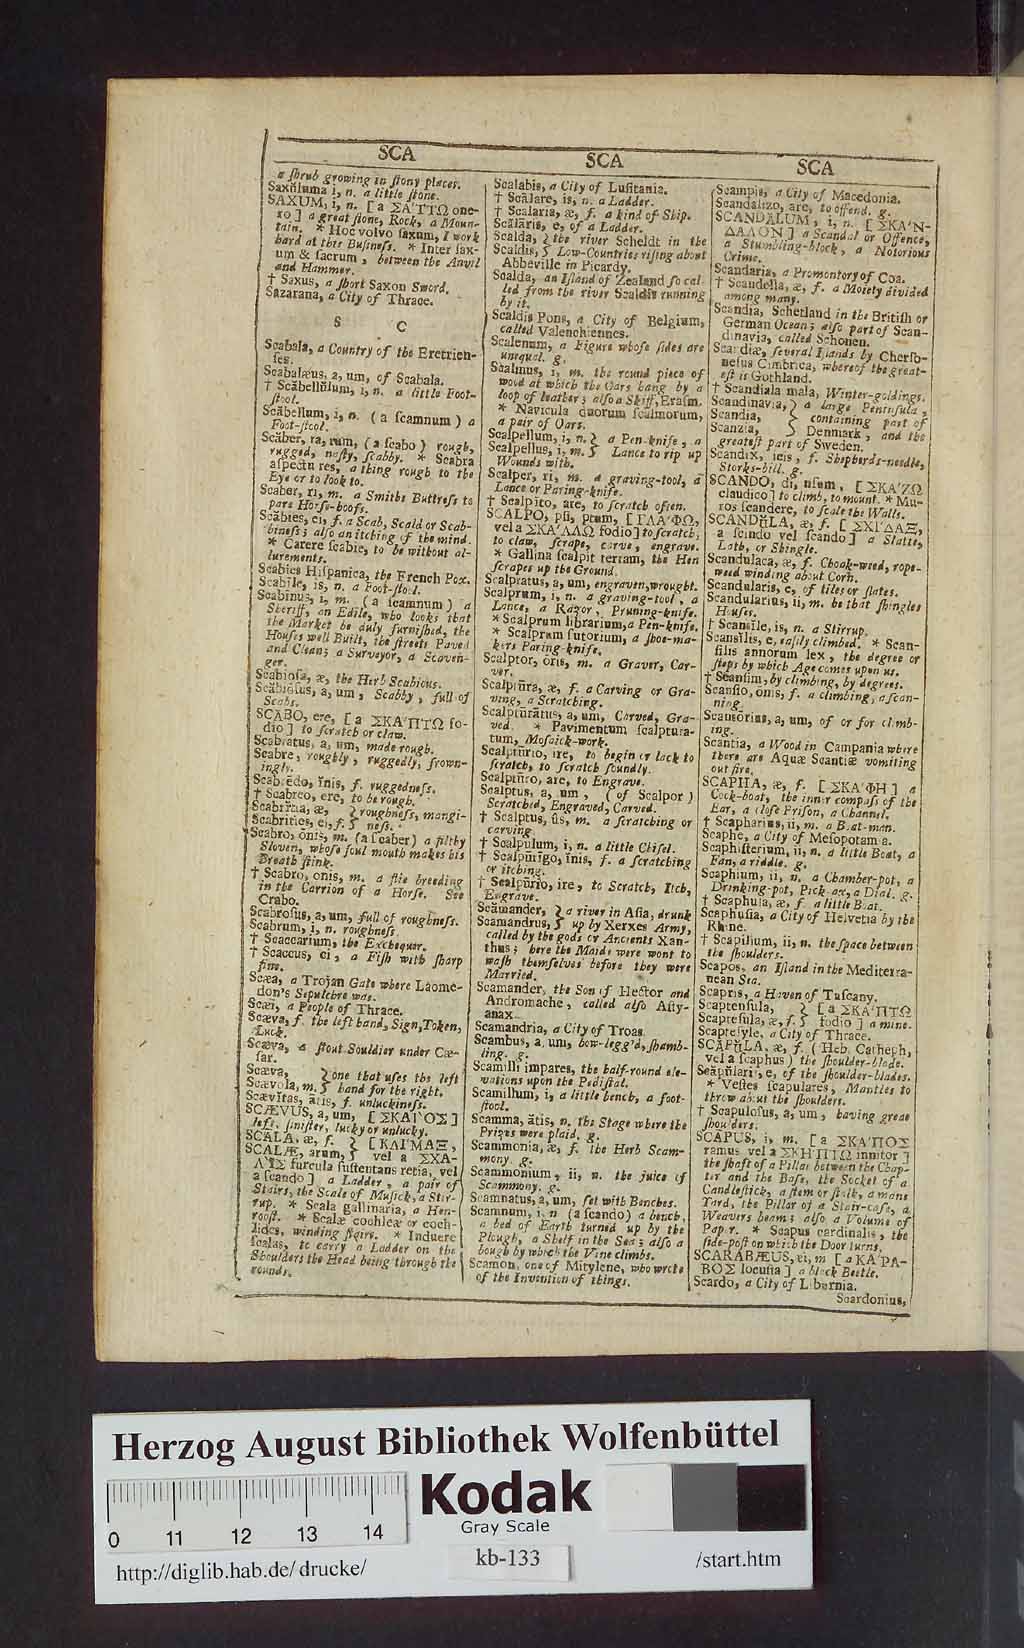 SCA
a ſhrub growing in ſtony places.
Saxŭlum a i, n. a little ſtone.
SAXUM, i, n. [a ΣΑ'ΤΤΩ one-
ro] a great ſtone, Rock, a Moun-
tain. * Hoc volvo ſaxum, I work
hard at this Buſineſs. * Inter ſax-
um & ſacrum, between the Anvil
and Hammer.
† Saxus, a ſhort Saxon Sword.
Sazarana, a City of Thrace.
S C
Scabala, a Country of the Eretrien-
ſes.
Scabalæus, a, um, of Scabala.
† Scăbellŭlum, i, n. a little Foot-
ſtool.
Scăbellum, i, n. (a ſcamnum) a
Foot-ſtool.
Scăber, ra, rum, (a ſcabo) rough,
rugged, naſty, ſcabby. * Scabra
aſpectu res, a thing rough to the
Eye or to look to.
Scaber, ri, m. a Smiths Buttreſs to
pare Horſe-hoofs.
Scăbies, ei, f. a Scab, Scald or Scab-
bineſs; alſo an itching of the mind.
* Carere ſcabie, to be without al-
lurements.
Scabies Hiſpanica, the French Pox.
Scabile, is, n. a Foot-ſtool.
Scabinus, i, m. (a ſcamnum) a
Sheriff, an Edile, who looks that
the Market be duly furniſhed, the
Houſes well Built, the ſtreets Paved
and Clean; a Surveyor, a Scaven-
ger.
Scabioſa, æ, the Herb Scabious.
Scăbiōſus, a, um, Scabby, full of
Scabs.
SCĂBO, ere, [a ΣΚΑ'ΠΤΩ fo-
dio] to ſcratch or claw.
Scabratus, a, um, made rough.
Scabre, roughly, ruggedly, frown-
ingly.
Scabrēdo, ĭnis, f. ruggedneſs.
† Scabreo, ere, to be rough.
Scabrĭtia, æ, } roughneſs, mangi-
Scabrities, ei, f. } neſs.
Scabro, ōnis, m. (a ſcaber) a filthy
Sloven, whoſe foul mouth makes his
Breath ſtink.
† Scabro, onis, m. a flie breeding
in the Carrion of a Horſe. See
Crabo.
Scabroſus, a, um, full of roughneſs.
Scabrum, i, n. roughneſs.
† Scaccarium, the Exchequer.
† Scaccus, ci, a Fiſh with ſharp
fins.
Scæa, a Trojan Gate where Laome-
don's Sepulchre was.
Scæi, a People of Thrace.
Scæva, f. the left hand, Sign, Token,
Luck.
Scæva, a ſtout Souldier under Cæ-
ſar.
Scæva, } one that uſes the left
Scævola, m. } hand for the right.
Scævĭtas, ātis, f. unluckineſs.
SCÆVUS, a, um, [ΣΚΑΙΟ'Σ]
left, ſiniſter, lucky or unlucky.
SCALA, æ, f. } [ΚΛΙ'ΜΑΞ,
SCALÆ, arum, } vel a ΣΧΑ-
furcula ſuſtentans retia, vel
a ſcando] a Ladder, a pair of
Stairs, the Scale of Muſick, a Stir-
rup. * Scala gallinaria, a Hen-
rooſt. * Scalæ cochleæ or coch-
lides, winding ſtairs. * Induere
ſcalas, to carry a Ladder on the
Shoulders the Head being through the
rounds.
SCA
Scalabis, a City of Luſitania.
† Scālare, is, n. a Ladder.
† Scalaria, æ, f. a kind of Ship.
Scālāris, e, of a Ladder.
Scalda, } the river Scheldt in the
Scaldis, } Low-Countries riſing about
Abbeville in Picardy.
Scalda, an Iſland of Zealand ſo cal-
led from the river Scaldis running
by it.
Scaldis Pons, a City of Belgium,
called Valenchiennes.
Scalenum, a Figure whoſe ſides are
unequal. g.
Scalmus, i, m. the round piece of
wood at which the Oars hang by a
loop of leather; alſo a Skiff, Eraſm.
* Navicula duorum ſcalmorum,
a pair of Oars.
Scalpellum, i, n. } a Pen-knife, a
Scalpellus, i, m. } Lance to rip up
Wounds with.
Scalper, ri, m. a graving-tool, a
Lance or Paring-knife.
† Scalpito, are, to ſcratch often.
SCALPO, pſi, ptum, [ΓΛΑ'ΦΩ,
vel a ΣΚΑ'ΛΛΩ fodio] to ſcratch,
to claw, ſcrape, carve, engrave.
* Gallina ſcalpit terram, the Hen
ſcrapes up the Ground.
Scalpratus, a, um, engraven, wrought.
Scalprum, i, n. a graving-tool, a
Lance, a Razor, Pruning-knife.
* Scalprum librarium, a Pen-knife.
* Scalprum ſutorium, a ſhoe-ma-
kers Paring-knife.
Scalptor, oris, m. a Graver, Car-
ver.
Scalptūra, æ, f. a Carving or Gra-
ving, a Scratching.
Scalptūrātus, a, um, Carved, Gra-
ved. * Pavimentum ſcalptura-
tum, Moſaick-work.
Scalptūrio, ire, to begin or lack to
ſcratch, to ſcratch ſoundly.
Scalptūro, are, to Engrave.
Scalptus, a, um, (of Scalpor)
Scratched, Engraved, Carved.
† Scalptus, ûs, m. a ſcratching or
carving.
† Scalpulum, i, n. a little Chiſel.
† Scalpūrīgo, ĭnis, f. a ſcratching
or itching.
† Scalpŭrio, ire, to Scratch, Itch,
Engrave.
Scămander, } a river in Aſia, drunk
Scamandrus, } up by Xerxes Army,
called by the gods or Ancients Xan-
thus; here the Maids were wont to
waſh themſelves before they were
Married.
Scamander, the Son of Hector and
Andromache, called alſo Aſty-
anax.
Scamandria, a City of Troas.
Scambus, a, um, bow-legg'd, ſhamb-
ling. g.
Scamilli impares, the half-round ele-
vations upon the Pedeſtal.
Scamillum, i, a little bench, a foot-
ſtool.
Scamma, ătis, n. the Stage where the
Prizes were plaid. g.
Scammonia, æ, f. the Herb Scam-
mony. g.
Scammonium, ii, n. the juice of
Scammony. g.
Scamnatus, a, um, ſet with Benches.
Scamnum, i, n (a ſcando) a bench,
a bed of Earth turned up by the
Plough, a Shelf in the Sea; alſo a
bough by which the Vine climbs.
Scamon, one of Mitylene, who wrote
of the Invention of things.
SCA
Scampis, a City of Macedonia.
Scandalizo, are, to offend. g.
SCANDĂLUM, i, n. [ΣΚΑ'Ν-
ΔΑΛΟΝ] a Scandal or Offence,
a Stumbling-block, a Notorious
Crime.
Scandaria, a Promontory of Coa.
† Scandella, æ, f. a Moiety divided
among many.
Scandia, Schetland in the Britiſh or
German Ocean; alſo part of Scan-
dinavia, called Schonen.
Scandiæ, ſeveral Iſlands by Cherſo-
neſus Cimbrica, whereof the great-
eſt is Gothland.
† Scandiala mala, Winter-goldings.
Scandinavia, } a large Peninſula,
Scandia, } containing part of
Scanzia, } Denmark, and the
greateſt part of Sweden.
Scandix, icis, f. Shepherds-needle,
Storks-bill. g.
SCANDO, di, nſum, [ΣΚΑ'ΖΩ
claudico] to climb, to mount. * Mu-
ros ſcandere, to ſcale the Walls.
SCANDŬLA, æ, f. [ΣΧΙ'ΔΑΞ,
a ſcindo vel ſcando] a Slatte,
Lath, or Shingle.
Scandulaca, æ, f. Choak-weed, rope-
weed winding about Corn.
Scandularis, e, of tiles or ſlates.
Scandularius, ii, m. he that ſhingles
Houſes.
† Scanſile, is, n. a Stirrup.
Scansĭlis, e, eaſily climbed. * Scan-
ſilis annorum lex, the degree or
ſteps by which Age comes upon us.
† Scanſim, by climbing, by degrees.
Scanſio, onis, f. a climbing, a ſcan-
ning.
Scansōrius, a, um, of or for climb-
ing.
Scantia, a Wood in Campania where
there are Aquæ Scantiæ vomiting
out fire.
SCAPHA, æ, f. [ΣΚΑ'ΦΗ] a
Cock-boat, the inner compaſs of the
Ear, a cloſe Priſon, a Channel.
† Scapharius, ii, m. a Boat-man.
Scaphe, a City of Meſopotamia.
Scaphiſterium, ii, n. a little Boat, a
Fan, a riddle. g.
Scaphium, ii, n. a Chamber-pot, a
Drinking-pot, Pick-ax, a Dial. g.
† Scaphula, æ, f. a little Boat.
Scaphuſia, a City of Helvetia by the
Rhine.
† Scapilium, ii, n. the ſpace between
the ſhoulders.
Scapos, an Iſland in the Mediterra-
nean Sea.
Scapris, a Haven of Tuſcany.
Scaptenſula, } [a ΣΚΑ'ΠΤΩ
Scapteſula, æ, f. } fodio] a mine.
Scapteſyle, a City of Thrace.
SCĂPŬLA, æ, f. (Heb. Catheph,
vel a ſcaphus) the ſhoulder-blade.
Scăpŭlari, e, of the ſhoulder-blades.
* Veſtes ſcapulares, Mantles to
throw about the ſhoulders.
† Scapuloſus, a, um, having great
ſhoulders.
SCAPUS, i, m. [a ΣΚΑ'ΠΟΣ
ramus vel a ΣΚΗ'ΠΤΩ innitor]
the ſhaft of a Pillar between the Chap-
ter and the Baſe, the Socket of a
Candleſtick, a ſtem or ſtalk, a mans
Yard, the Pillar of a Stair-caſe, a
Weavers beam; alſo a Volume of
Paper. * Scapus cardinalis, the
ſide-poſt on which the Door turns.
SCARABÆUS, ei, m [a ΚΑ'ΡΑ-
ΒΟΣ locuſta] a black Beetle.
Scardo, a City of Libernia.
Scardonius,
Herzog August Bibliothek Wolfenbüttel
0 11 12 13 14
Kodak
Gray Scale
http://diglib.hab.de/drucke/
kb-133
/start.htm